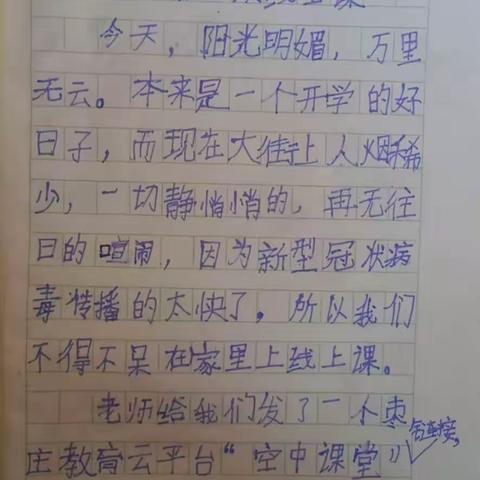 线上课
今天，阳光明媚，万里
无云。本来是一个开学的好
日子，而现在大街上人烟稀
少，一切静悄悄的，再无往
日的喧闹，因为新型冠状病
毒传播的太快了，所以我们
不得不呆在家里上线上课。
老师给我们发了一个枣
庄教育云平台“空中课堂”链接，